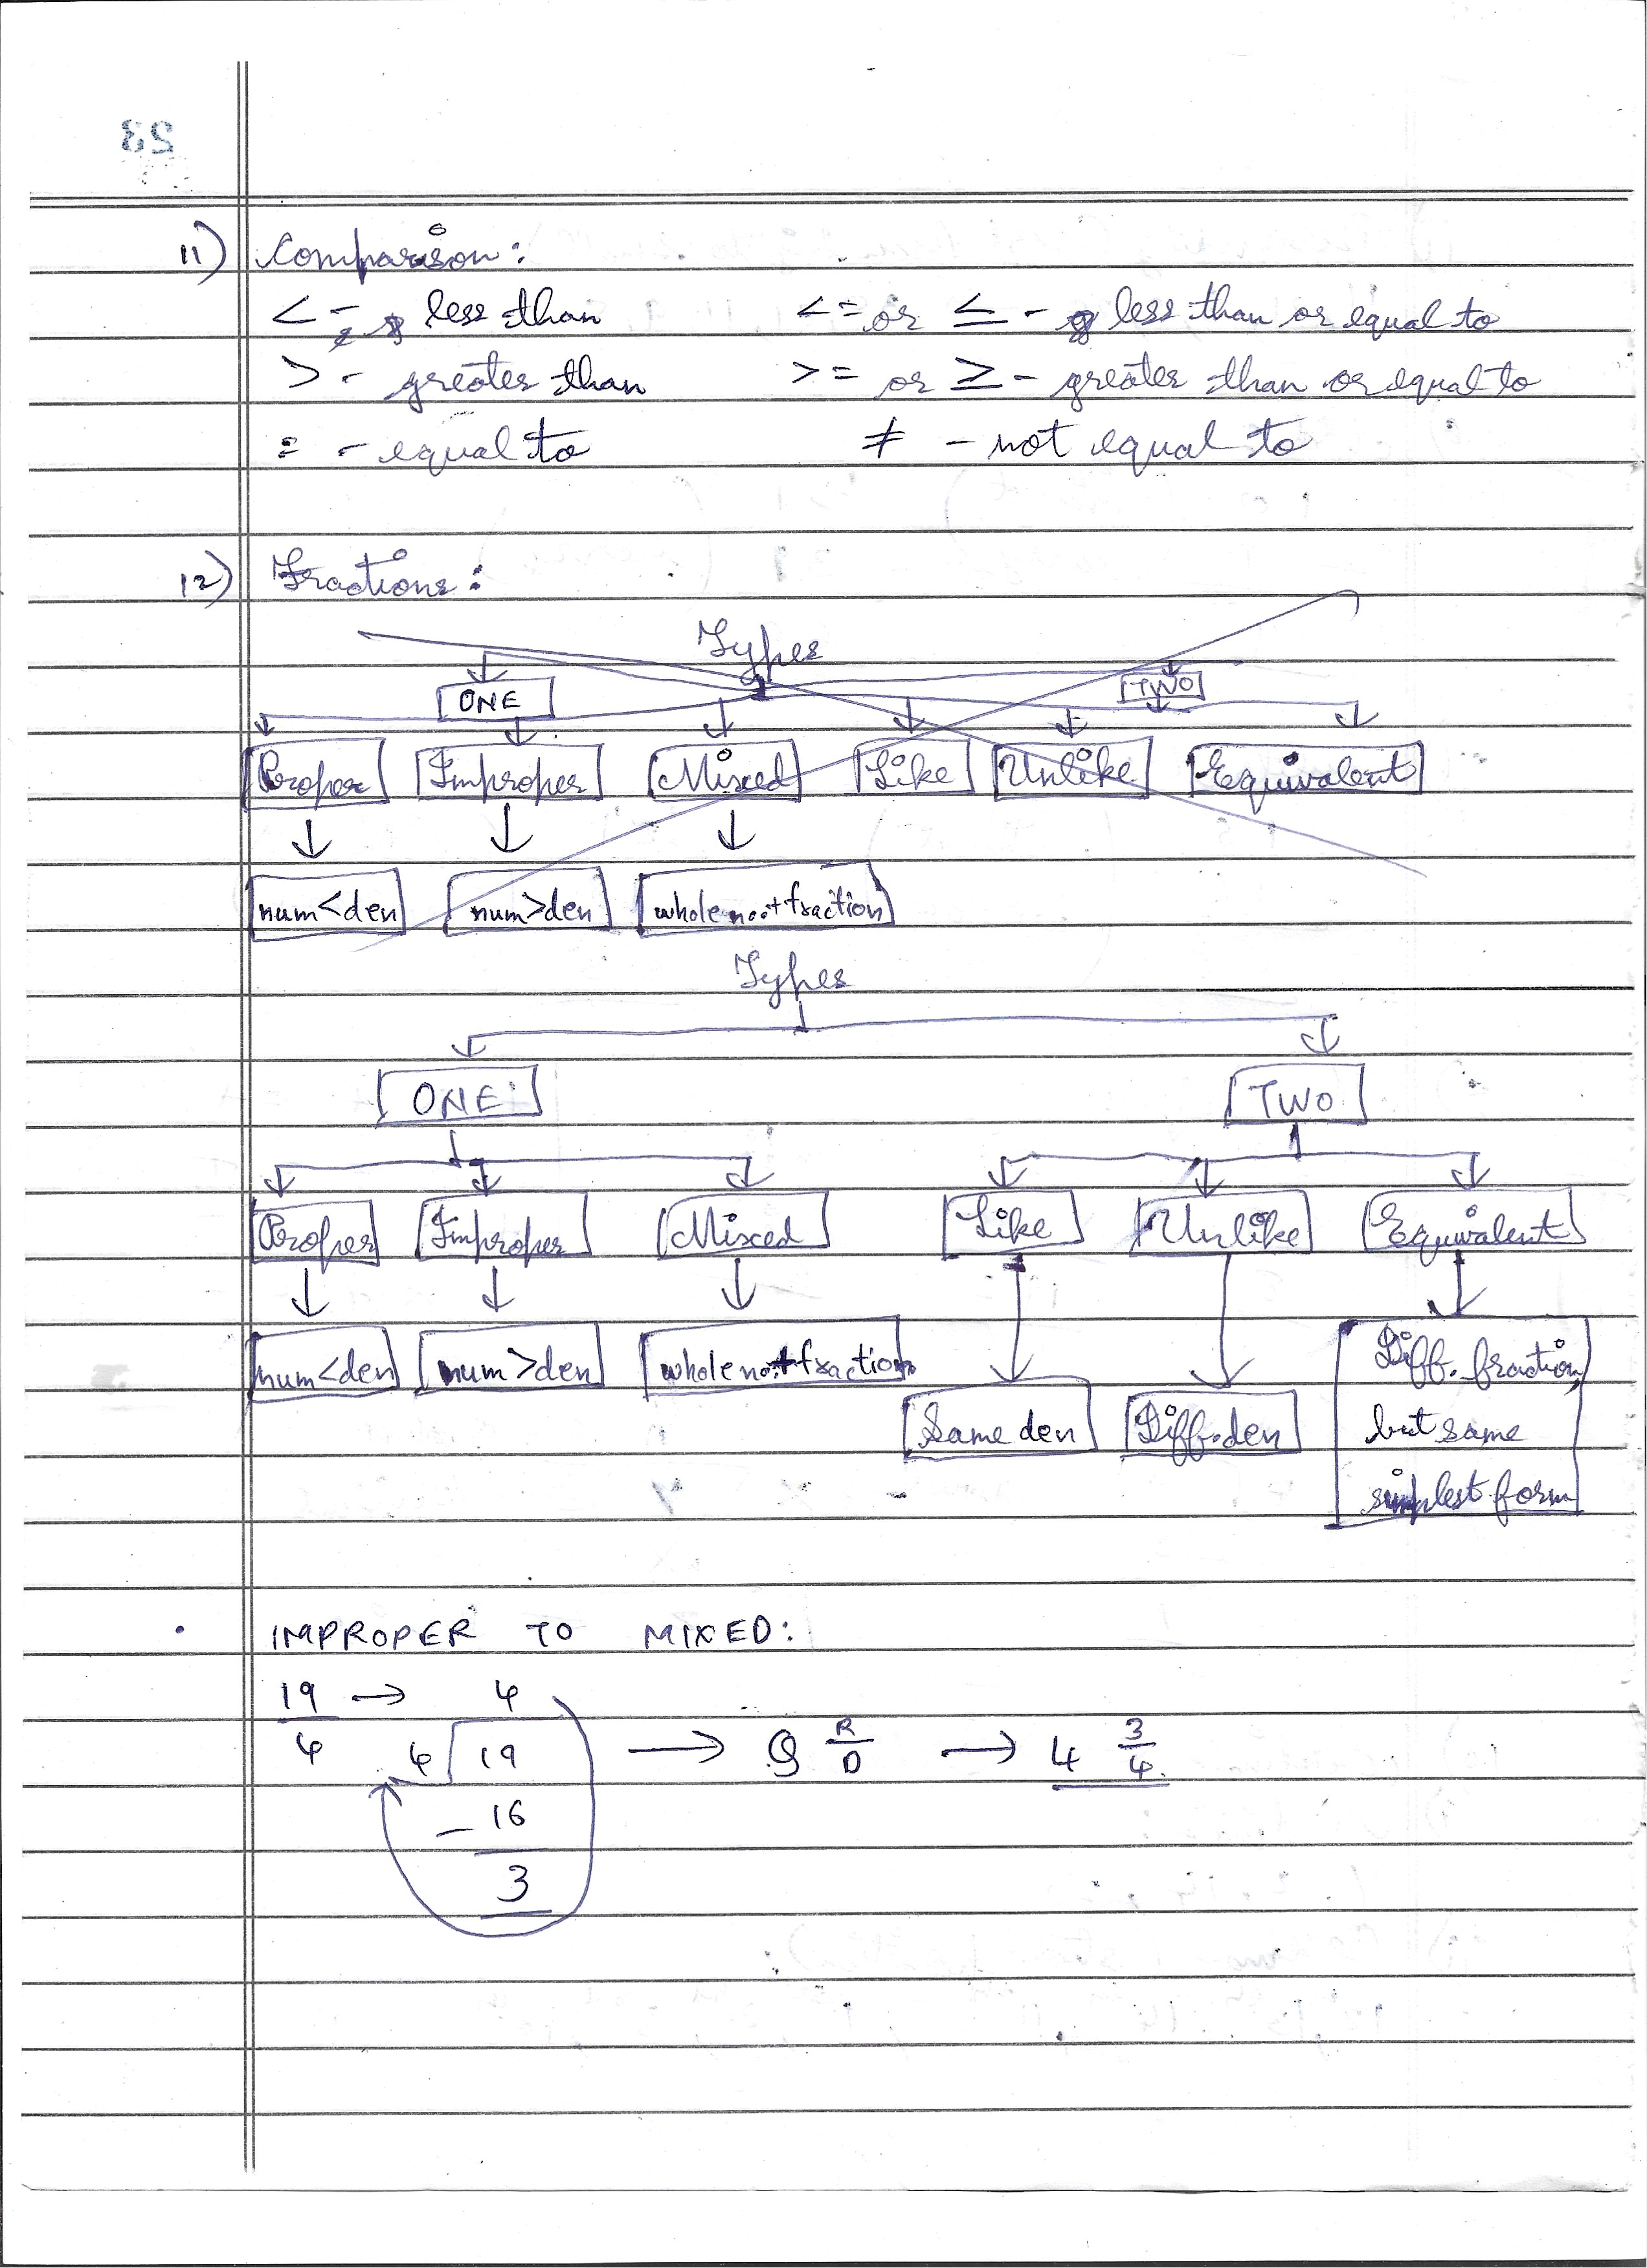 23
11) Comparison:
< - less than <= or ≤ - less than or equal to
> - greater than >= or ≥ - greater than or equal to
= - equal to ≠ - not equal to
12) Fractions:
Types
ONE TWO
Proper Improper Mixed Like Unlike Equivalent
num<den num>den whole no.+fraction
Types
ONE TWO
Proper Improper Mixed Like Unlike Equivalent
num<den num>den whole no.+fraction Diff. fraction,
Same den Diff. den but same
simplest form
• IMPROPER TO MIXED:
19 → 4
4 4 19 → Q R/D → 4 3/4
- 16
3